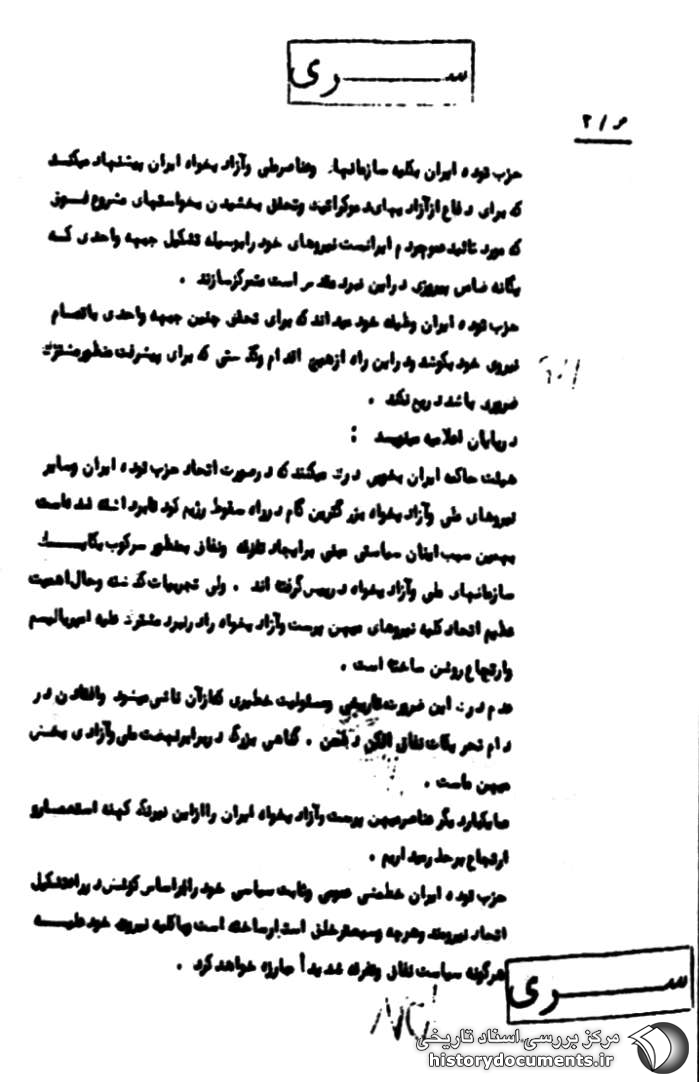 ســـــری
حزب توده ایران بکلیه سازمانها وعناصرملی وآزاد یخواه ایران پیشنهاد میکند
که برای دفاع ازآزاد یهاید موکراتیک وتحقق بخشیدن بخواستهای مشروع فـوق
که مورد تائید مردم ایرانست نیروهای خود رابوسیله تشکیل جبهه واحدی کـه
یگانه ضامن پیروزی دراین نبرد مقدس است متمرکزسازند .
حزب توده ایران وظیفه خود میداند که برای تحقق چنین جبهه واحدی باتمـام
نیروی خود بکوشد ودراین راه ازهیچ اقدام وگذشتی که برای پیشرفت منظورمشترک
ضروری باشد دریغ نکند .
درپایان اعلامیه مینویسد :
هیئت حاکمه ایران بخوبی درک میکنند که درصورت اتحاد حزب توده ایران وسایر
نیروهای ملی وآزاد یخواه بزرگترین گام درراه سقوط رژیم کودتابرداشته شده است
بهمین سبب اینان سیاستی مبنی برایجاد تفرقه ونفاق بمنظور سرکوب یکایـک
سازمانهای ملی وآزاد یخواه درپیش گرفته اند . ولی تجربیات گذشته وحال اهمیت
عظیم اتحاد کلیه نیروهای میهن پرست وآزاد یخواه رادرنبرد مشترک علیه امپریالیسم
وارتجاع روشن ساخته است .
عدم درک این ضرورت تاریخی ومسئولیت خطیری که ازآن ناشی میشود وافتادن در
دام تحریکات نفاق افکن دشمن . گناهی بزرگ دربرابرنهضت ملی وآزادی بخش
میهن ماست .
مایکبارد یگر عناصرمیهن پرست وآزاد یخواه ایران راازاین نیرنگ کهنه استعمارو
ارتجاع برحذر میداریم .
حزب توده ایران خطمشی عمومی وثابت سیاسی خود رابراساس کوشش درراه تشکیل
اتحاد نیرومند وهرچه وسیعترخلق استوارساخته است وباکلیه نیروی خود علیـه
هرگونه سیاست نفاق وتفرقه شدیداً مبارزه خواهد کرد .
ســـــری
مرکز بررسی اسناد تاریخی
historydocuments.ir